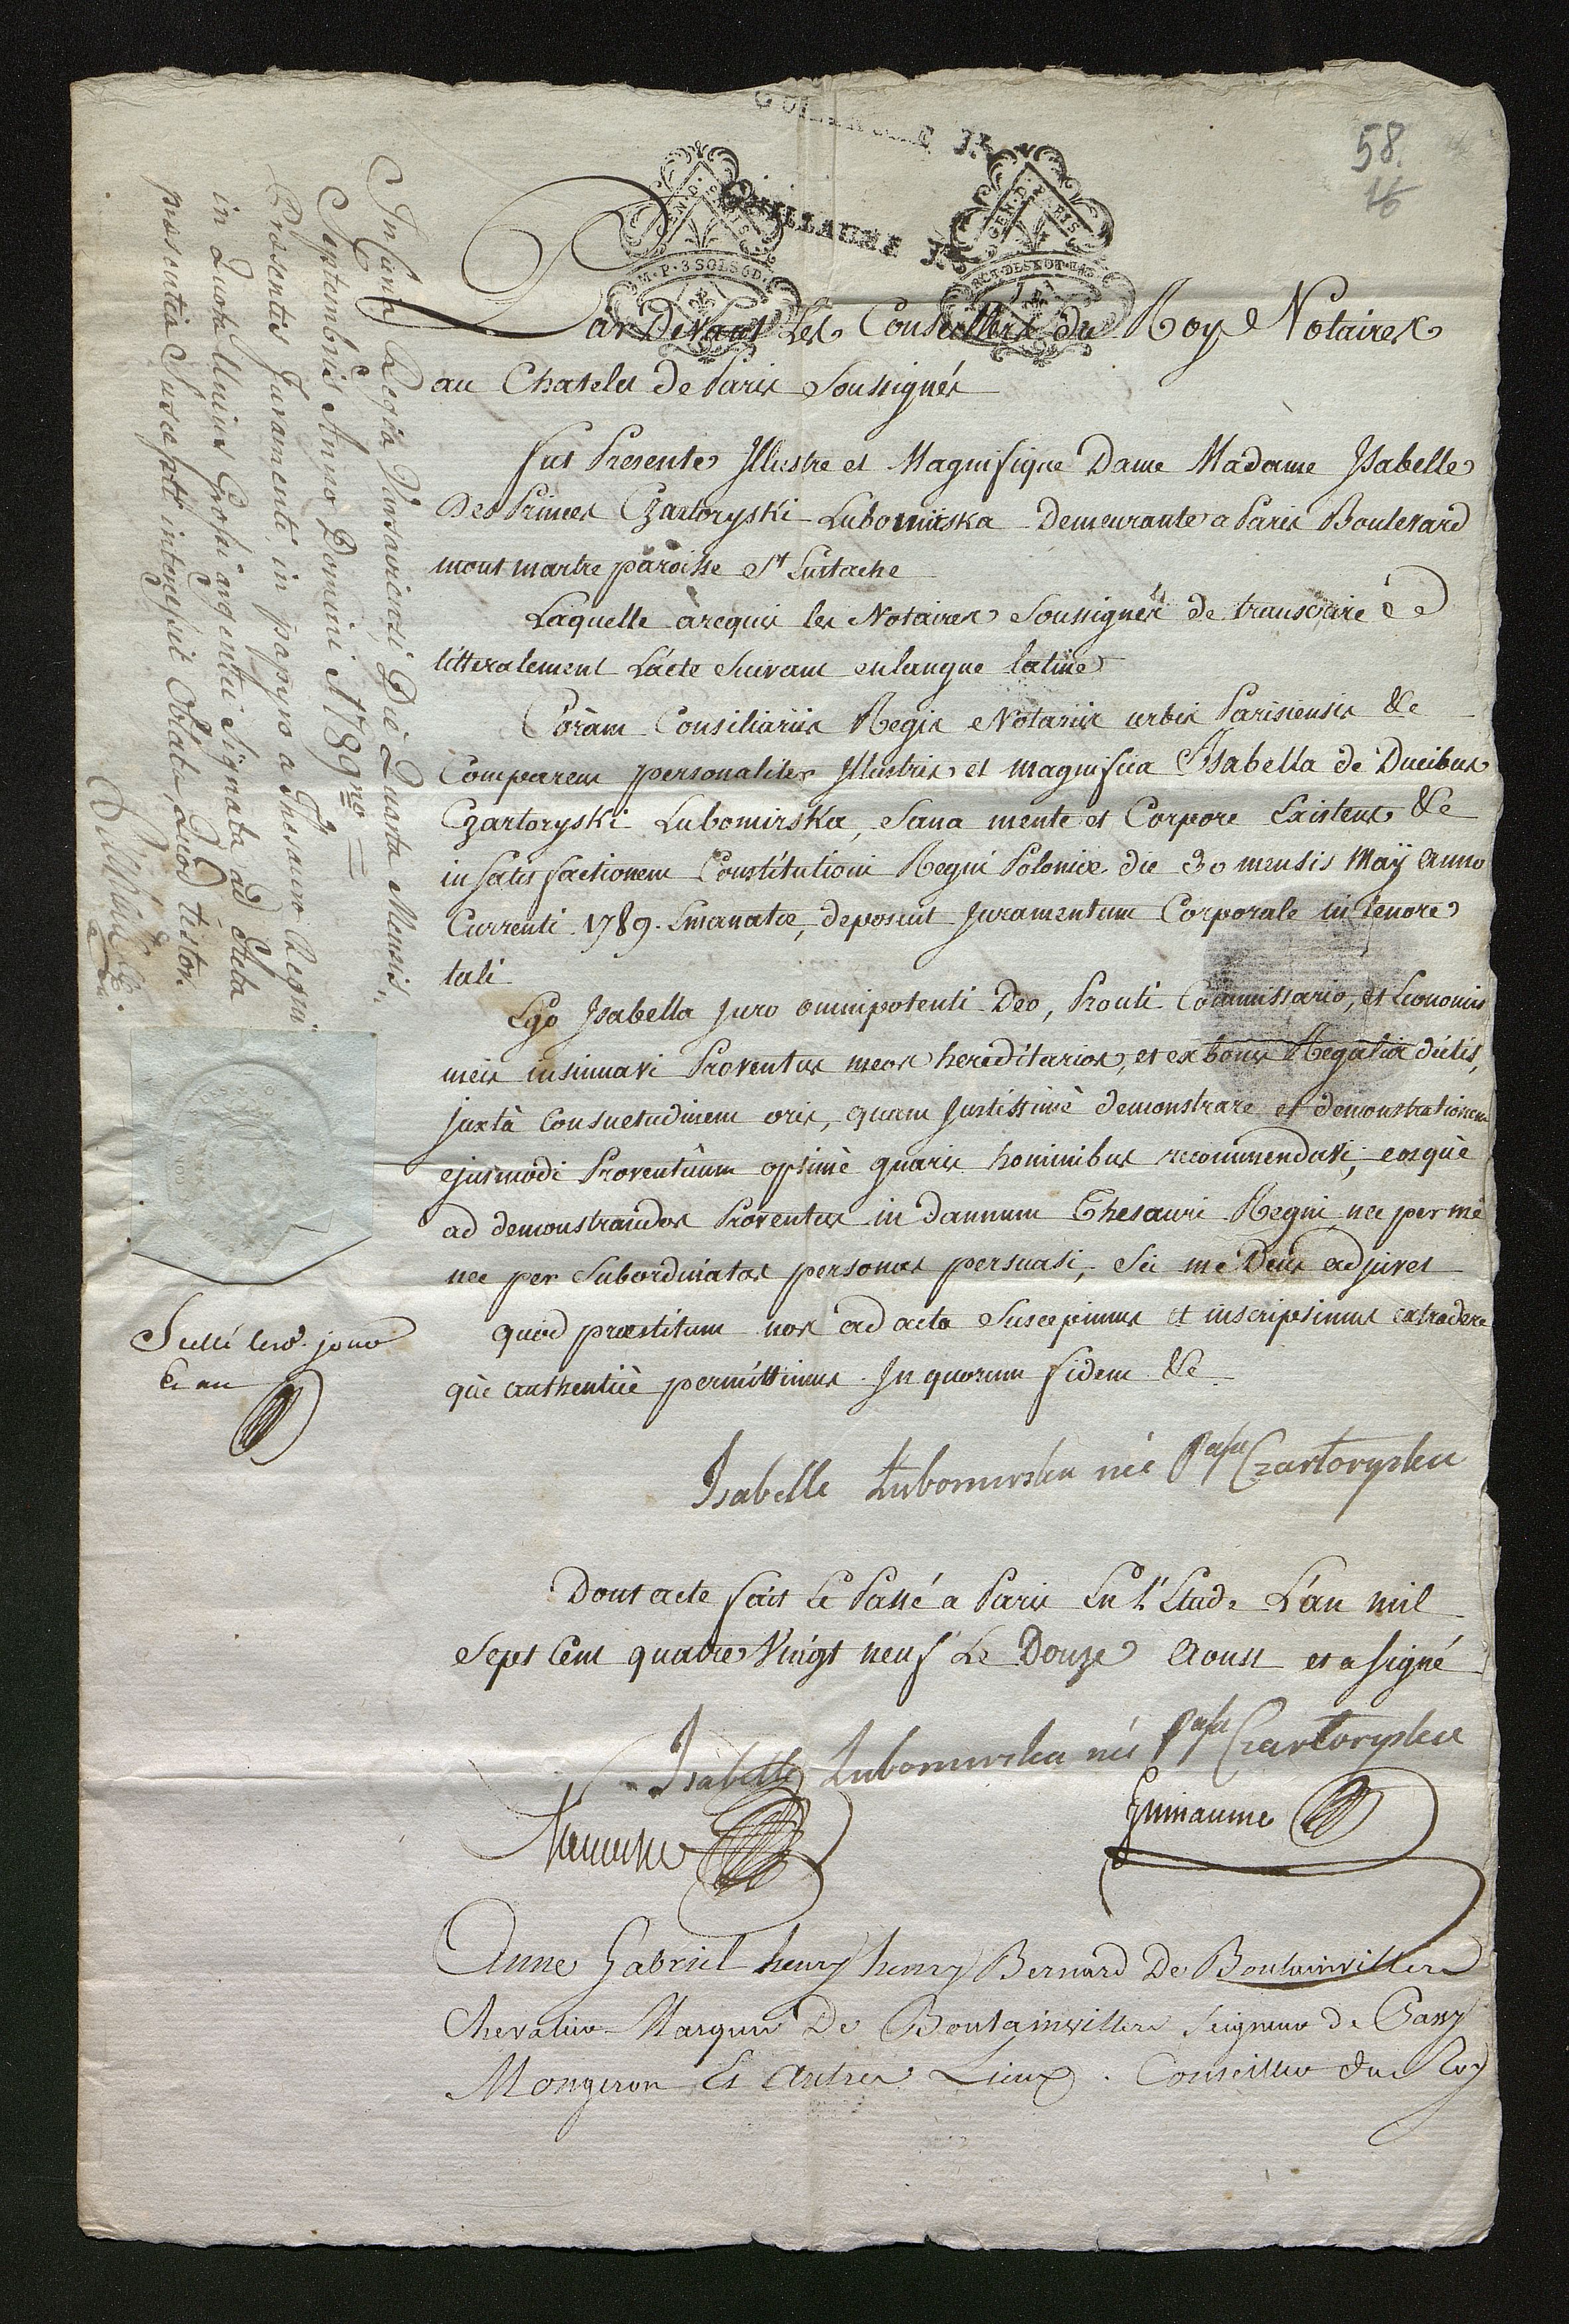 58.
16
GUILLAUME J.
GUILLAUME J.
GEN. D. PARIS
M. P. 3 SOLS 6 D.
GEN. D. PARIS
ACT. DES NOT.
Par Devant Les Conseillers du Roy Notaires
au Chatelet de Paris Soussignés
fut Presente Illustre et Magnifique Dame Madame Isabelle
Des Princes Czartoryski Lubomirska Demeurante a Paris Boulevard
mont martre paroisse St Eustache
Laquelle a requis les Notaires Soussignés de transcrire
litteralement L'acte Suivant en langue latine
Coràm Consiliariis Regis Notariis urbis Parisiensis &c
Comparens personaliter Illustris et magnifica Isabella de Ducibus
Czartoryski Lubomirska, Sana mente et Corpore Existens &c
in Satisfactionem Constitutioni Regni Poloniæ die 30 mensis Maÿ anno
Currenti 1789. Emanatæ, deposuit Juramentum Corporale in tenore
tali
Ego Isabella Juro omnipotenti Deo, Prouti Commissario, et Economis
meis insinuavi Proventus meos hereditarios, et ex bonis Regalis dictis,
juxtà Consuetudinem oris, quam Justissimè demonstrare et demonstrationem
ejusmodi Proventuum optimè gnaris hominibus recommendavi, eosquè
ad demonstrandos Proventus in damnum Thesauri Regni nec per me
nec per Subordinatas personas persuasi, Sic me Deus adjuvet
quod præstitum nos ad acta Suscepimus et inscripsimus extradere
què authenticè permittimus. In quorum fidem &c
Isabelle Lubomirska née Psse Czartoryska
Dont acte fait Et Passé a Paris En l'Etude L'an mil
Sept Cent quatre Vingt neuf Le Douze Aoust et a signé
Isabelle Lubomirska née Psse Czartoryska
Guillaume
Anne Gabriel henry Bernard De Boulainvillers
Chevalier Marquis De Boulainvillers Seigneur de Passy
Mongeron Et Autres Lieux. Conseiller du Roy
In Curia Regia Varsaviensi Die Quarta Mensis
Septembris Anno Domini 1789no
Præsentis Juramenti in papyro a Thesauro Regni
in Quota Unius Grossi argentei Signata ad Acta
præsentia Suscepti intercessit Oblata, Quod testor.
Scellé lesd. jour
Et an